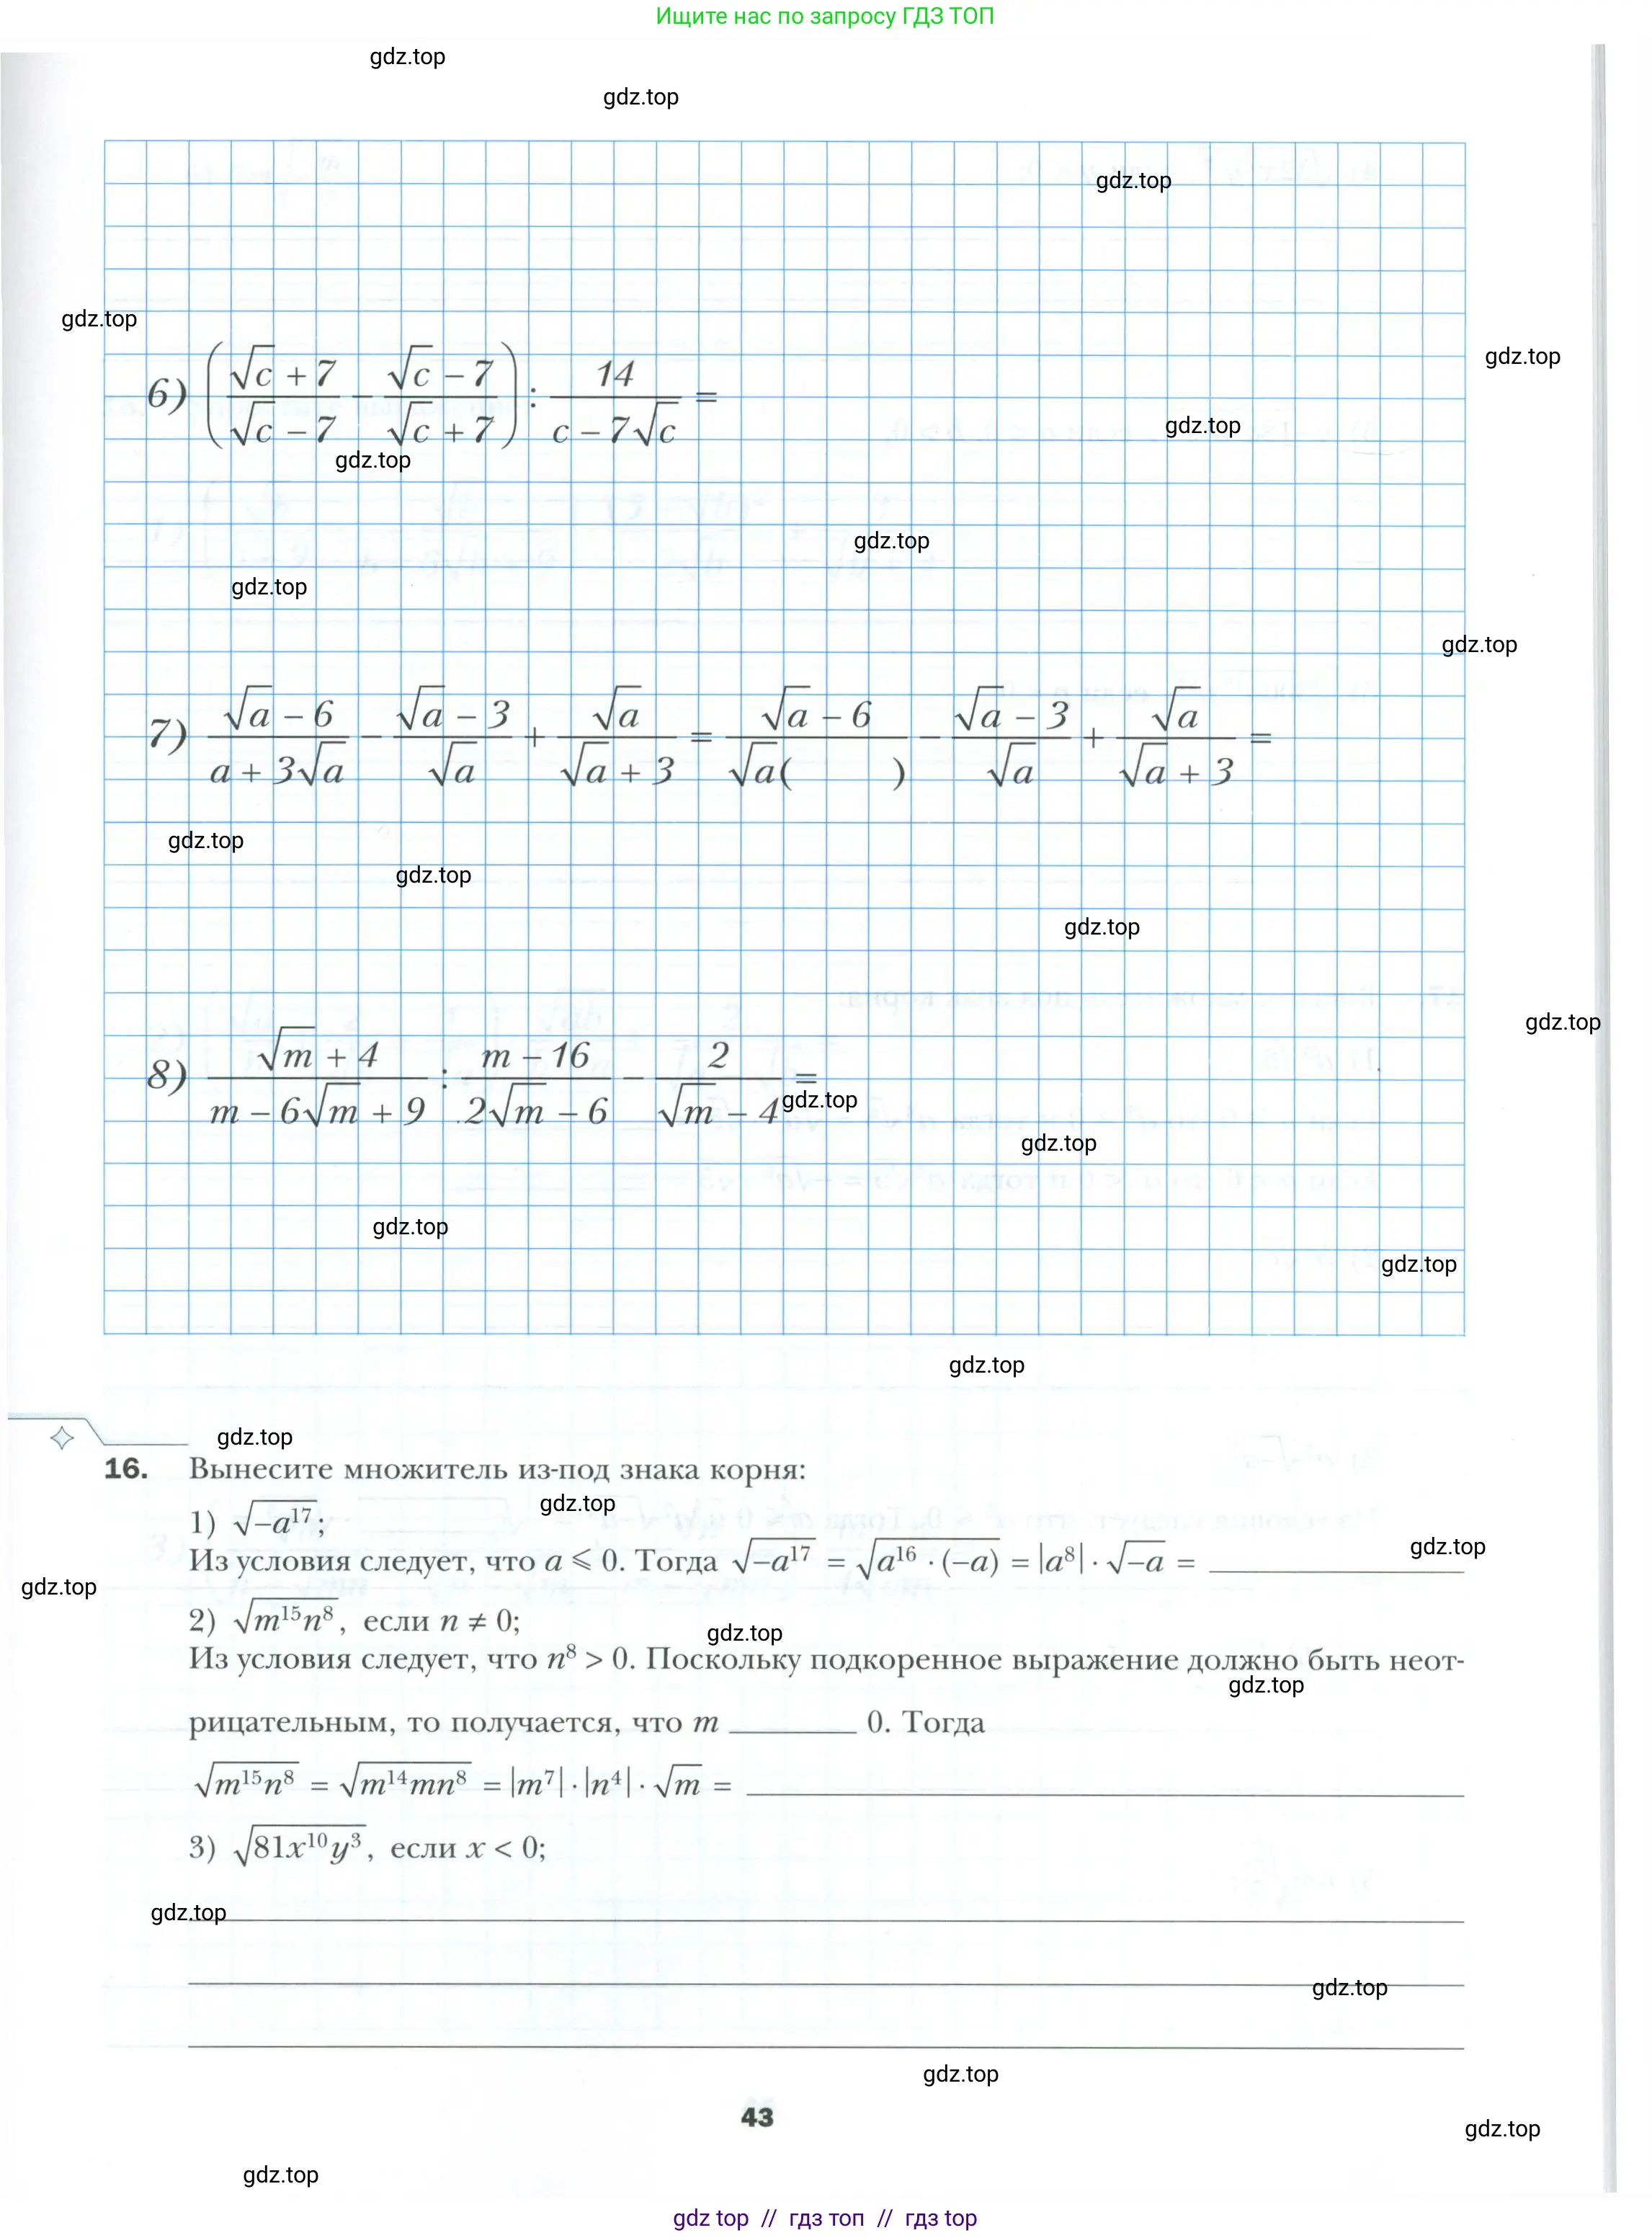 Ищите нас по запросу ГДЗ ТОП
gdz.top
gdz.top
gdz.top
gdz.top
gdz.top
6) ((√c + 7)/(√c − 7) − (√c − 7)/(√c + 7)) : 14/(c − 7√c) =
gdz.top
gdz.top
gdz.top
gdz.top
gdz.top
7) (√a − 6)/(a + 3√a) − (√a − 3)/√a + √a/(√a + 3) = (√a − 6)/(√a( )) − (√a − 3)/√a + √a/(√a + 3) =
gdz.top
gdz.top
gdz.top
gdz.top
8) (√m + 4)/(m − 6√m + 9) : (m − 16)/(2√m − 6) − 2/(√m − 4) =
gdz.top
gdz.top
gdz.top
gdz.top
gdz.top
gdz.top
16. Вынесите множитель из-под знака корня:
gdz.top
1) √(−a¹⁷);
Из условия следует, что a ⩽ 0. Тогда √(−a¹⁷) = √(a¹⁶ · (−a)) = |a⁸| · √(−a) = ______
gdz.top
gdz.top
2) √(m¹⁵n⁸), если n ≠ 0;
gdz.top
Из условия следует, что n⁸ > 0. Поскольку подкоренное выражение должно быть неот-
gdz.top
рицательным, то получается, что m ______ 0. Тогда
√(m¹⁵n⁸) = √(m¹⁴mn⁸) = |m⁷| · |n⁴| · √m = ______
3) √(81x¹⁰y³), если x < 0;
gdz.top
gdz.top
gdz.top
43
gdz.top
gdz.top
gdz top // гдз топ // гдз top